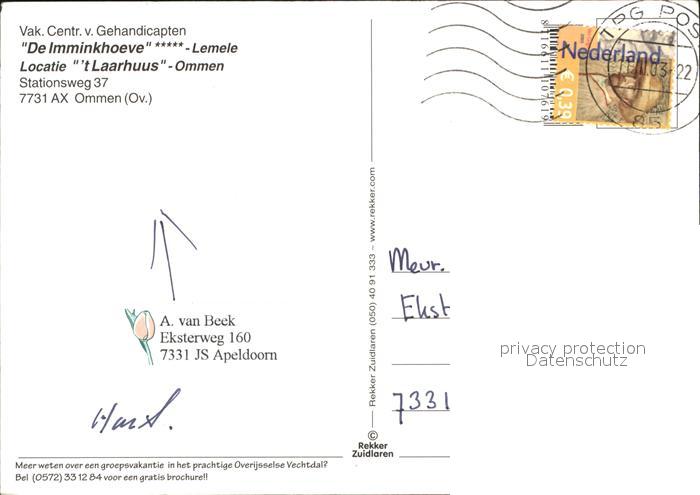 Vak. Centr. v. Gehandicapten
"De Imminkhoeve" ***** - Lemele
Locatie "'t Laarhuus" - Ommen
Stationsweg 37
7731 AX Ommen (Ov.)
Nederland
€ 0,39
TPG POS
A. van Beek
Eksterweg 160
7331 JS Apeldoorn
Meer weten over een groepsvakantie in het prachtige Overijsselse Vechtdal?
Bel (0572) 33 12 84 voor een gratis brochure!!
Rekker Zuidlaren (050) 40 91 333 ~ www.rekker.com
©
Rekker
Zuidlaren
Mevr.
Ekst
7331
privacy protection
Datenschutz